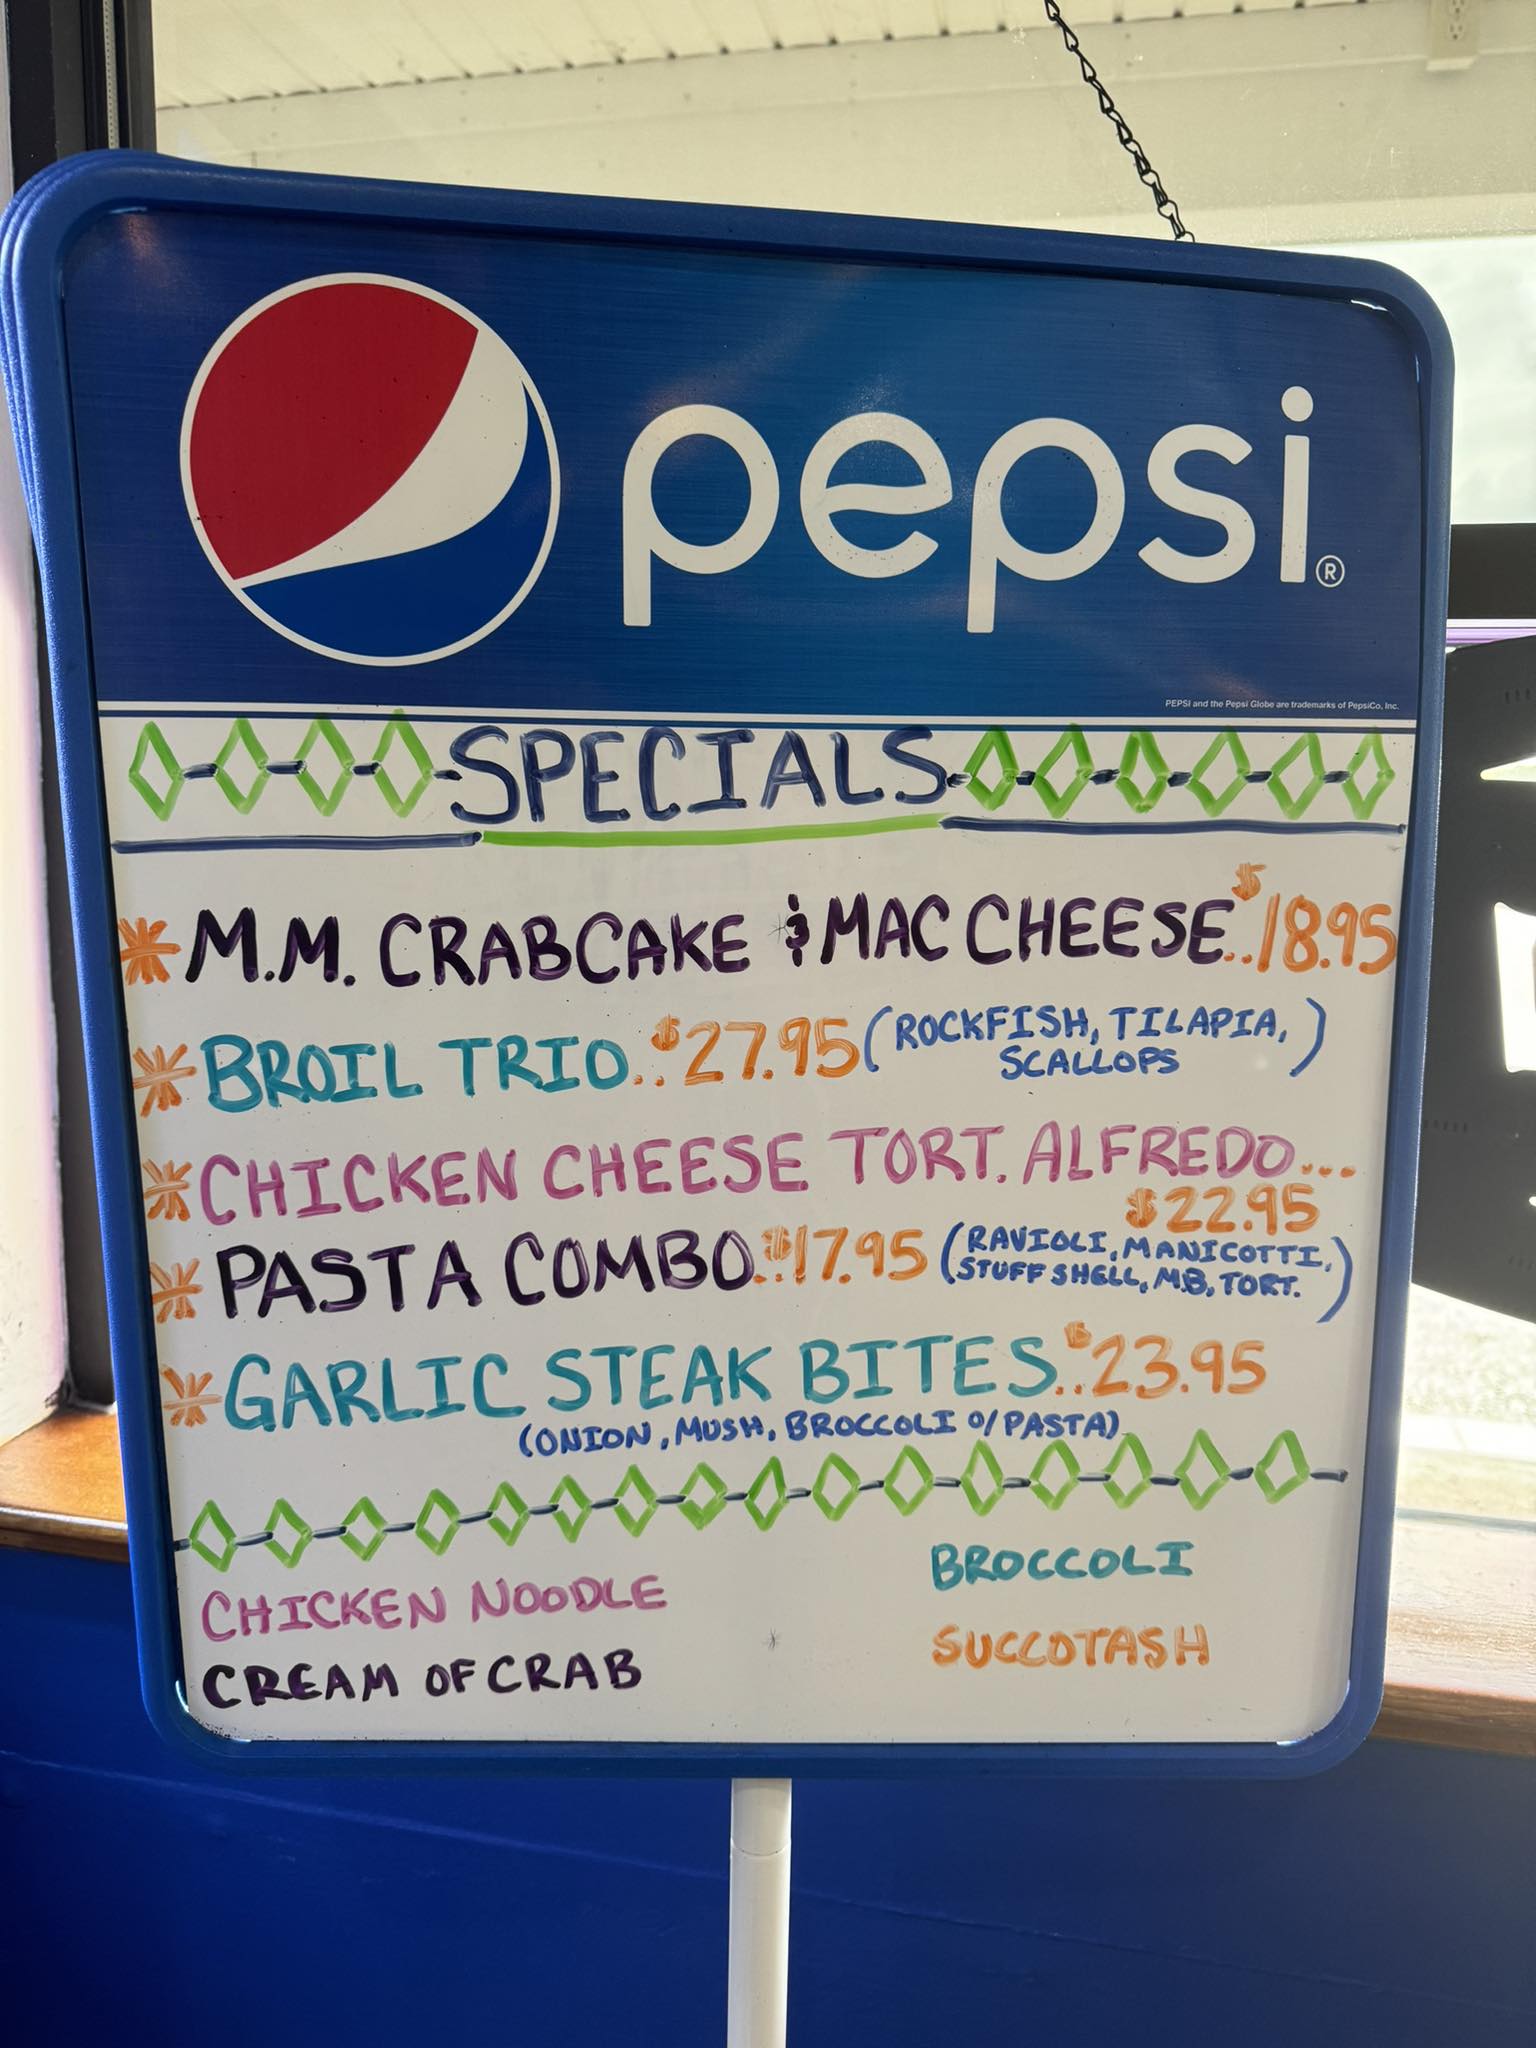 pepsi®
PEPSI and the Pepsi Globe are trademarks of PepsiCo, Inc.
SPECIALS
* M.M. CRABCAKE & MAC CHEESE..$18.95
* BROIL TRIO..$27.95 (ROCKFISH, TILAPIA,
SCALLOPS)
* CHICKEN CHEESE TORT. ALFREDO...
$22.95
* PASTA COMBO..$17.95 (RAVIOLI, MANICOTTI,
STUFF SHELL, M.B, TORT.)
* GARLIC STEAK BITES..$23.95
(ONION, MUSH, BROCCOLI O/PASTA)
CHICKEN NOODLE
CREAM OF CRAB
BROCCOLI
SUCCOTASH